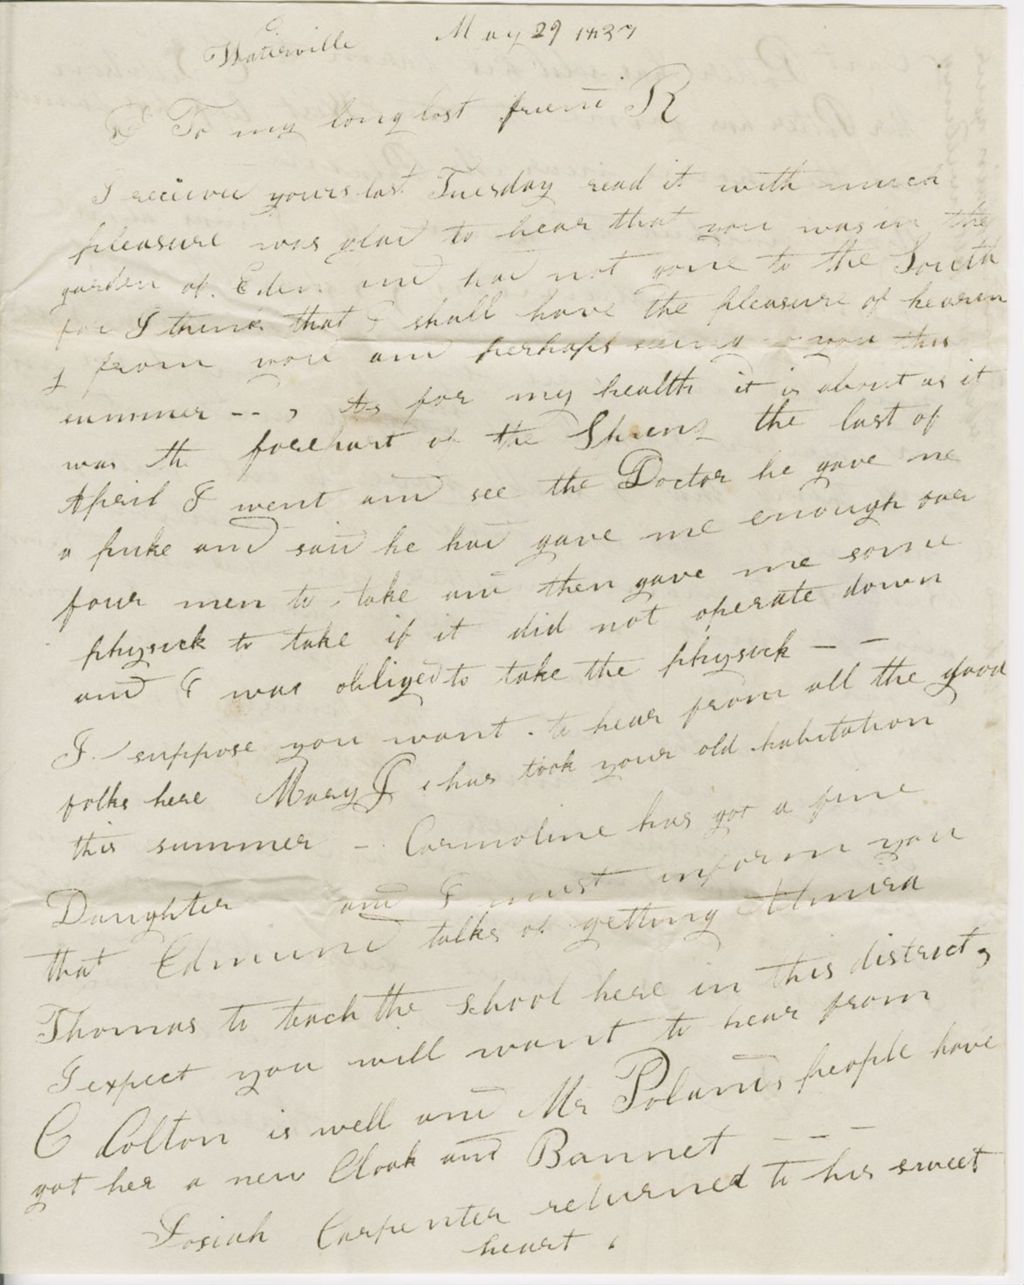 Waterville May 29 1837
To my long lost friend R
I recieved yours last Tuesday read it with much
pleasure was glad to hear that you was in the
garden of Eden and had not gone to the South
for I think that I shall have the pleasure of hearin
g from you and perhaps seeing you this
summer -- , As for my health it is about as it
was the forepart of the the last of
April I went and see the Doctor he gave me
a puke and said he had gave me enough for
four men to take and then gave me some
physick to take if it did not operate down
and I was obliged to take the physick - -
I suppose you want to hear from all the good
folks here Mary J has took your old habitation
this summer - Carmoline has got a fine
Daughter and I must inform you
that Edmund talks of getting Almira
Thomas to teach the school here in this district,
I expect you will want to hear from
C Colton is well and Mr Polands people have
got her a new Cloak and Bonnet - - -
Josiah Carpenter returned to his sweet
heart .